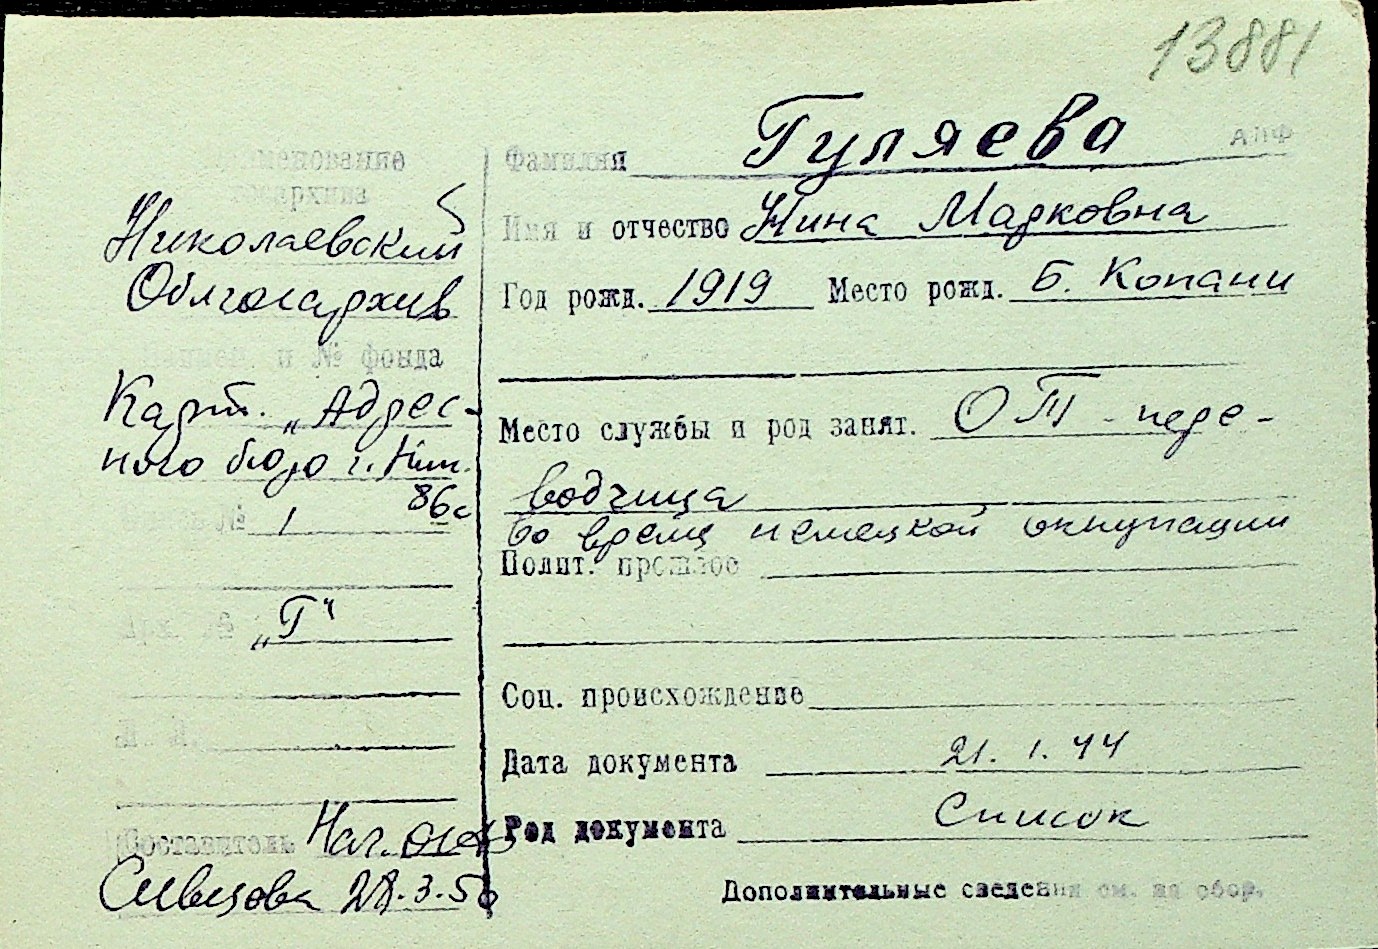 13881
АПФ
Наименование
госархива
Николаевский
Облгосархив
Наимен. и № фонда
Карт. „Адрес-
ного бюро г. Ник.
1
Арх. №
„Г“
Составитель Нач.
28.3.5
Фамилия Гуляева
Имя и отчество Нина Марковна
Год рожд. 1919 Место рожд. Б. Копани
Место службы и род занят. ОТ - пере-
водчица
во время немецкой оккупации
Полит. прошлое
Соц. происхождение
Дата документа 21. 1. 44
Род документа Список
Дополнительные сведения см. на обор.